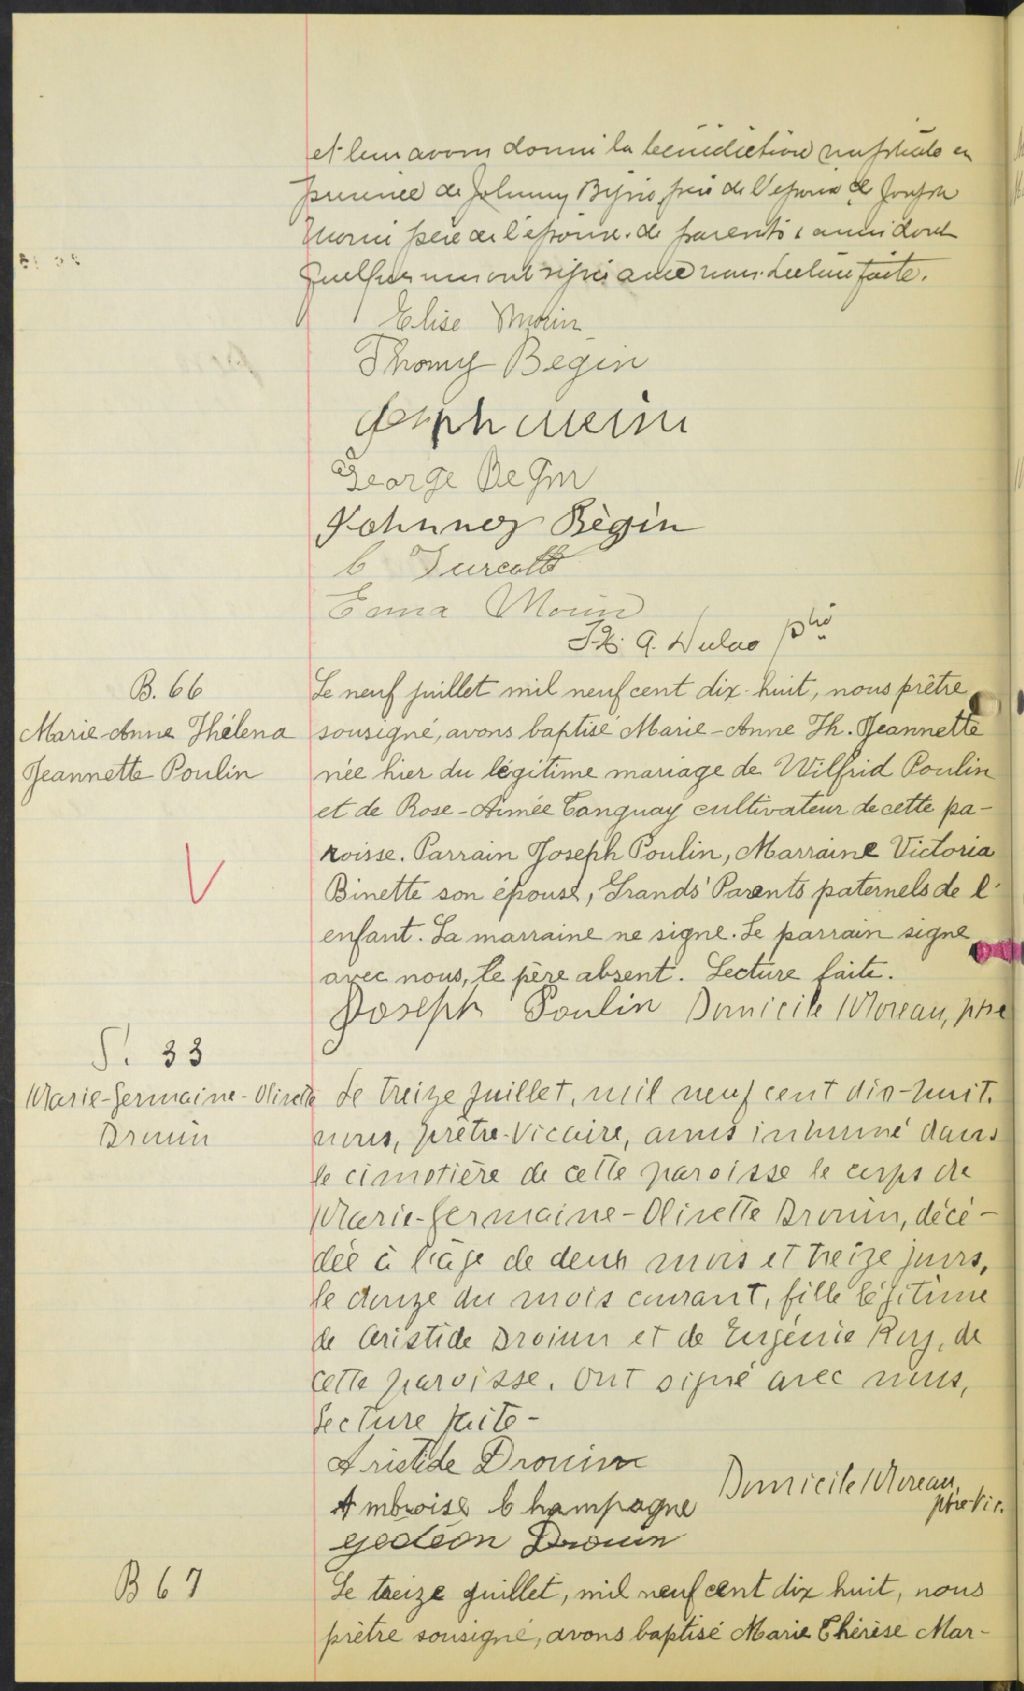 et leur avons donné la bénédiction nuptiale en
présence de Johnny Bégin père de l'époux et de Joseph
Morin père de l'épouse. de parents & amis dont
quelques uns ont signé avec nous. Lecture faite.
Elise Morin
Thomy Begin
Joseph Morin
George Begin
Johnney Bègin
C Turcotte
Emma Morin
A. Dulac ptre
B. 66
Marie-Anne Thélena
Jeannette Poulin
Le neuf juillet mil neuf cent dix-huit, nous prêtre
sousigné, avons baptisé Marie-Anne Th. Jeannette
née hier du légitime mariage de Wilfrid Poulin
et de Rose-Aimée Tanguay cultivateur de cette pa-
roisse. Parrain Joseph Poulin, Marraine Victoria
Binette son épouse, Grands' Parents paternels de l'
enfant. La marraine ne signe. Le parrain signe
avec nous, le père absent. Lecture faite.
Joseph Poulin Domicile Moreau, ptre
S. 33
Marie-Germaine-Olivette
Drouin
Le treize juillet, mil neuf cent dix-huit,
nous, prêtre-vicaire, avons inhumé dans
le cimetière de cette paroisse le corps de
Marie-Germaine-Olivette Drouin, décé-
dée à l'âge de deux mois et treize jours,
le douze du mois courant, fille légitime
de Aristide Drouin et de Eugénie Roy, de
cette paroisse. Ont signé avec nous,
Lecture faite-
Aristide Drouin
Ambroise Champagne
Domicile Moreau,
ptre Vic.
Gédéon Drouin
B 67
Le treize juillet, mil neuf cent dix huit, nous
prêtre sousigné, avons baptisé Marie Thérèse Mar-